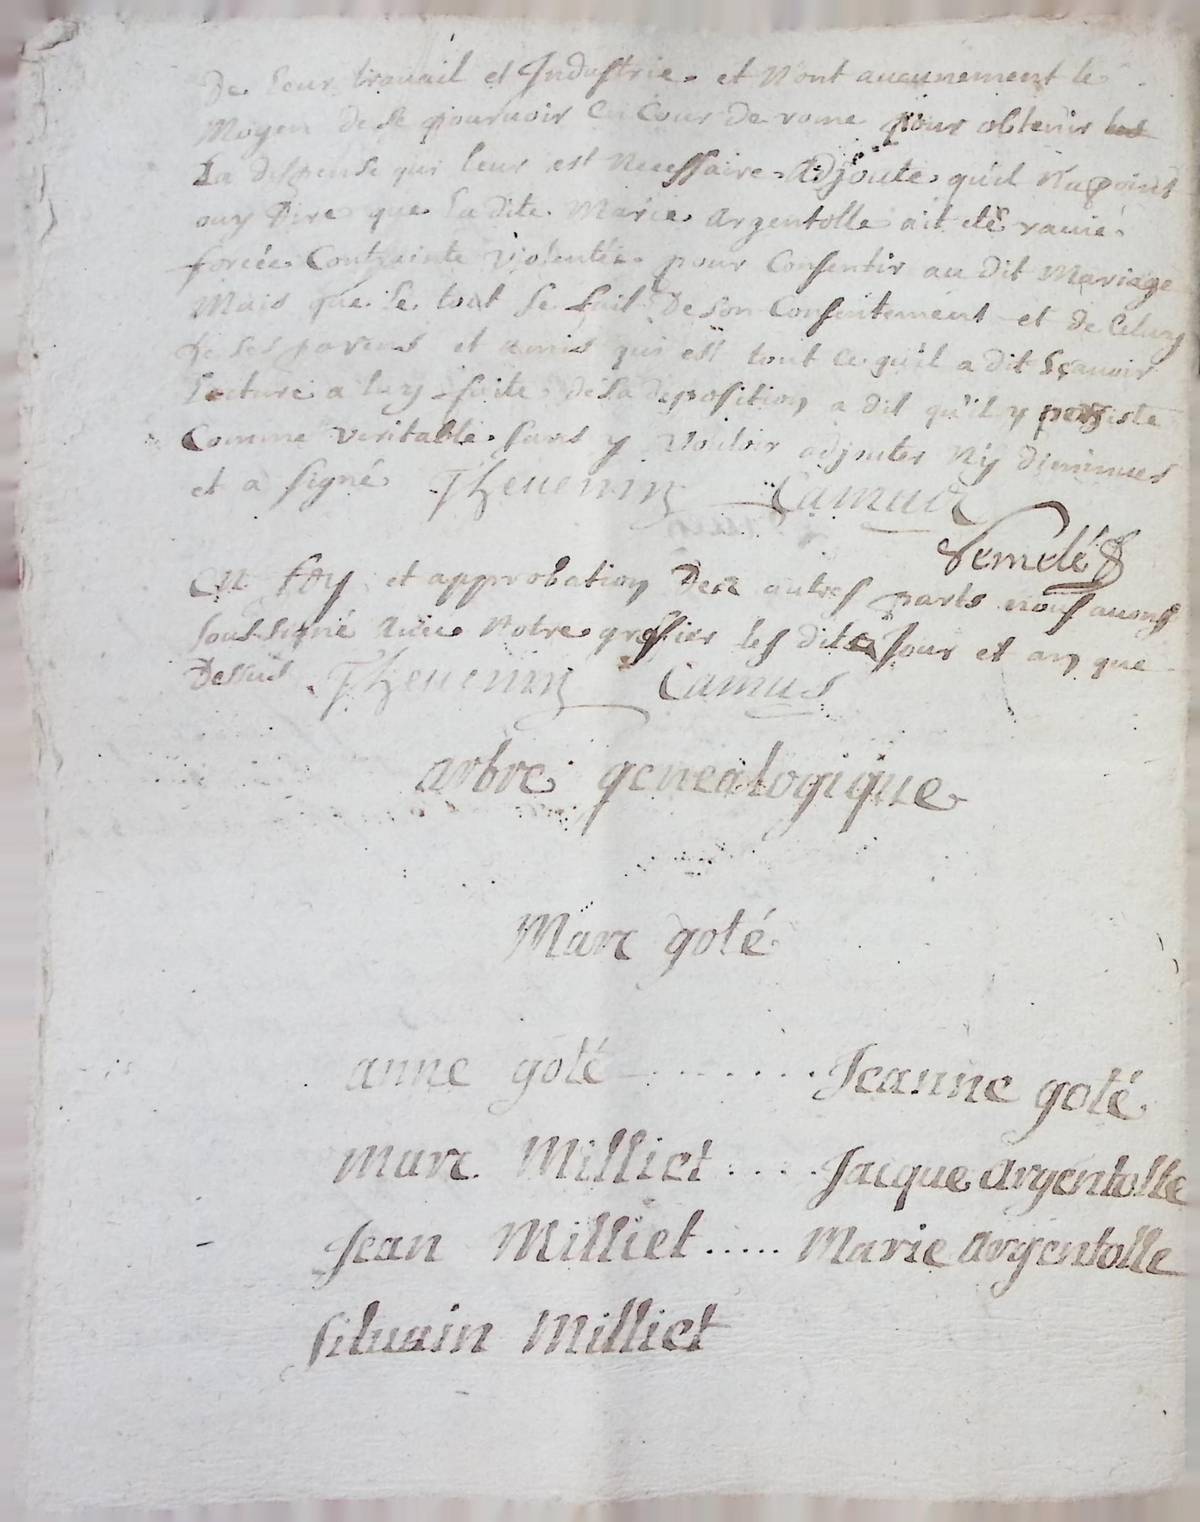 De leur travail et Industrie. et N'ont aucunement le
Moyen de se pouruoir en Cour de rome pour obtenir les
La dispense qui leur est Necessaire. Adjoute qu'il N'a point
ouy Dire que Ladite Marie Argentolle ait eté rauie
forcée Contrainte Violentée pour Consentir au dit Mariage
Mais que le tout se fait De son Consentement et de Celuy
De ses parens et amis qui est tout ce qu'il a dit Sçauoir
Lecture a luy faite de sa deposition a dit qu'il y persiste
Comme veritable sans y Vouloir adjouter Ny diminuer
et a signé Theuenin Camus
En foy et approbation Des autres parts nous auons
soussigné auec Notre greffier les dits Jour et an que
Dessus Theuenin Camus
arbre genealogique
Marc goté
anne goté ........ Jeanne goté
Marc Milliet .... Jacque Argentolle
Jean Milliet ..... Marie Argentolle
Siluain Milliet